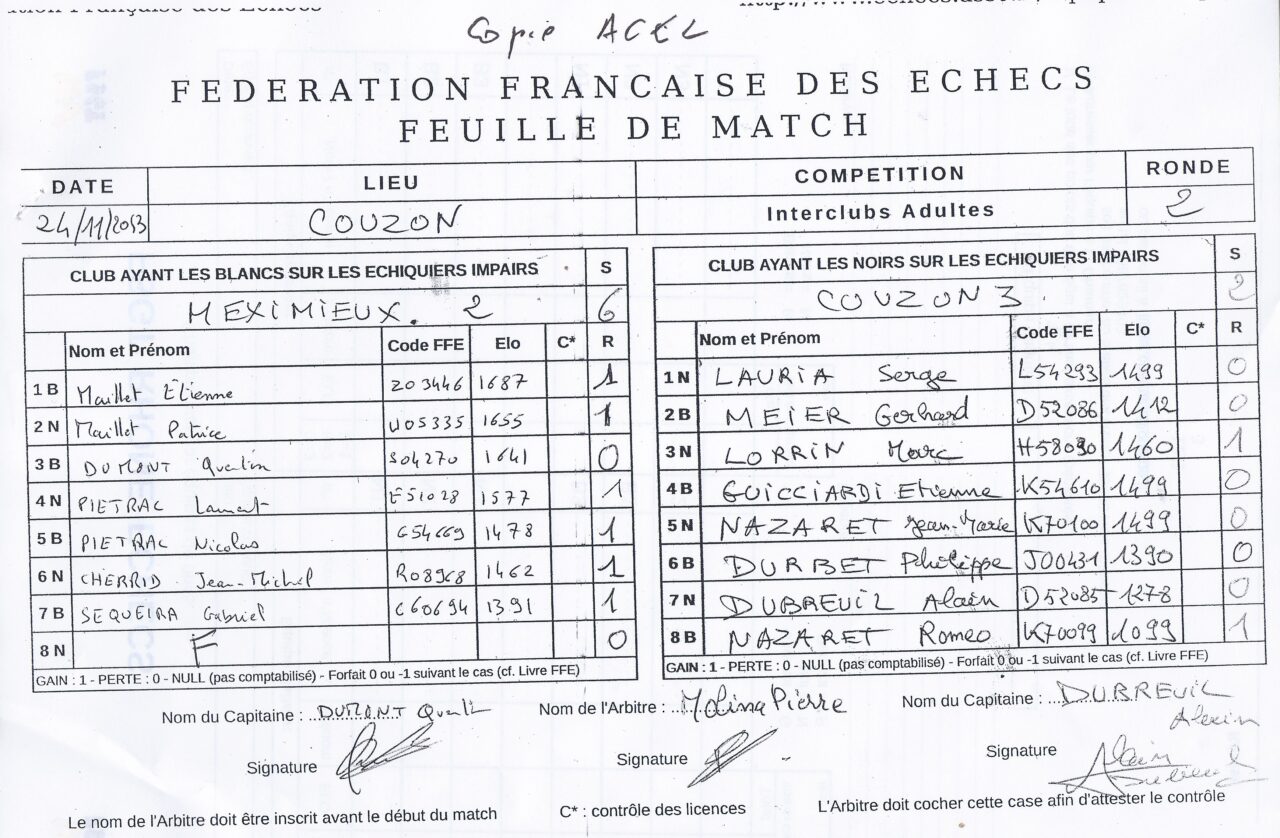 Copie ACEL
FEDERATION FRANCAISE DES ECHECS
FEUILLE DE MATCH
DATE LIEU COMPETITION RONDE
24/11/2013 COUZON Interclubs Adultes 2
CLUB AYANT LES BLANCS SUR LES ECHIQUIERS IMPAIRS S
MEXIMIEUX. 2 6
Nom et Prénom Code FFE Elo C* R
1 B Maillet Etienne Z03446 1687 1
2 N Maillet Patrice U05335 1655 1
3 B DUMONT Quentin S04270 1641 0
4 N PIETRAC Laurent E51028 1577 1
5 B PIETRAC Nicolas C54669 1478 1
6 N CHERRID Jean-Michel R08968 1462 1
7 B SEQUEIRA Gabriel C60694 1391 1
8 N F 0
GAIN : 1 - PERTE : 0 - NULL (pas comptabilisé) - Forfait 0 ou -1 suivant le cas (cf. Livre FFE)
CLUB AYANT LES NOIRS SUR LES ECHIQUIERS IMPAIRS S
COUZON 3 2
Nom et Prénom Code FFE Elo C* R
1 N LAURIA Serge L54293 1499 0
2 B MEIER Gerhard D52086 1412 0
3 N LORRIN Marc H58030 1460 1
4 B GUICCIARDI Etienne K54610 1499 0
5 N NAZARET Jean-Marie K70100 1499 0
6 B DURBET Philippe J00431 1390 0
7 N DUBREUIL Alain D52085 1278 0
8 B NAZARET Romeo K70099 1099 1
GAIN : 1 - PERTE : 0 - NULL (pas comptabilisé) - Forfait 0 ou -1 suivant le cas (cf. Livre FFE)
Nom du Capitaine : DUMONT Quentin
Nom de l'Arbitre : Molina Pierre
Nom du Capitaine : DUBREUIL Alain
Signature
Signature
Signature Alain Dubreuil
Le nom de l'Arbitre doit être inscrit avant le début du match
C* : contrôle des licences
L'Arbitre doit cocher cette case afin d'attester le contrôle